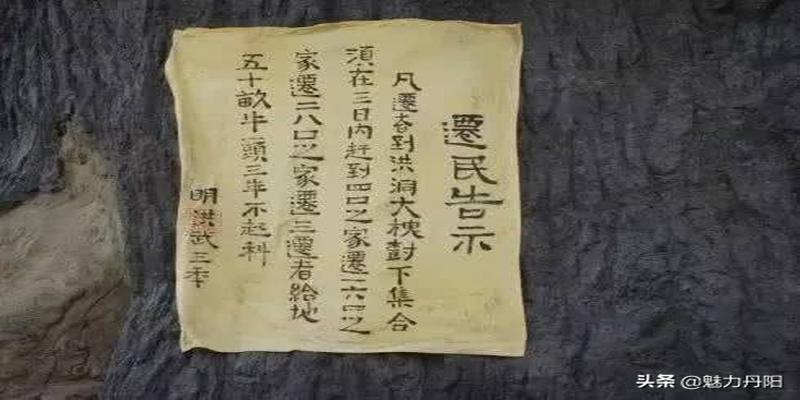 遷民告示
凡遷者到洪洞大槐樹下集合
須在三日内赶到四口之家遷一六口之
家遷二八口之家遷三遷者給地
五十畝牛一頭三年不起科
明洪武三年
头条 @魅力丹阳